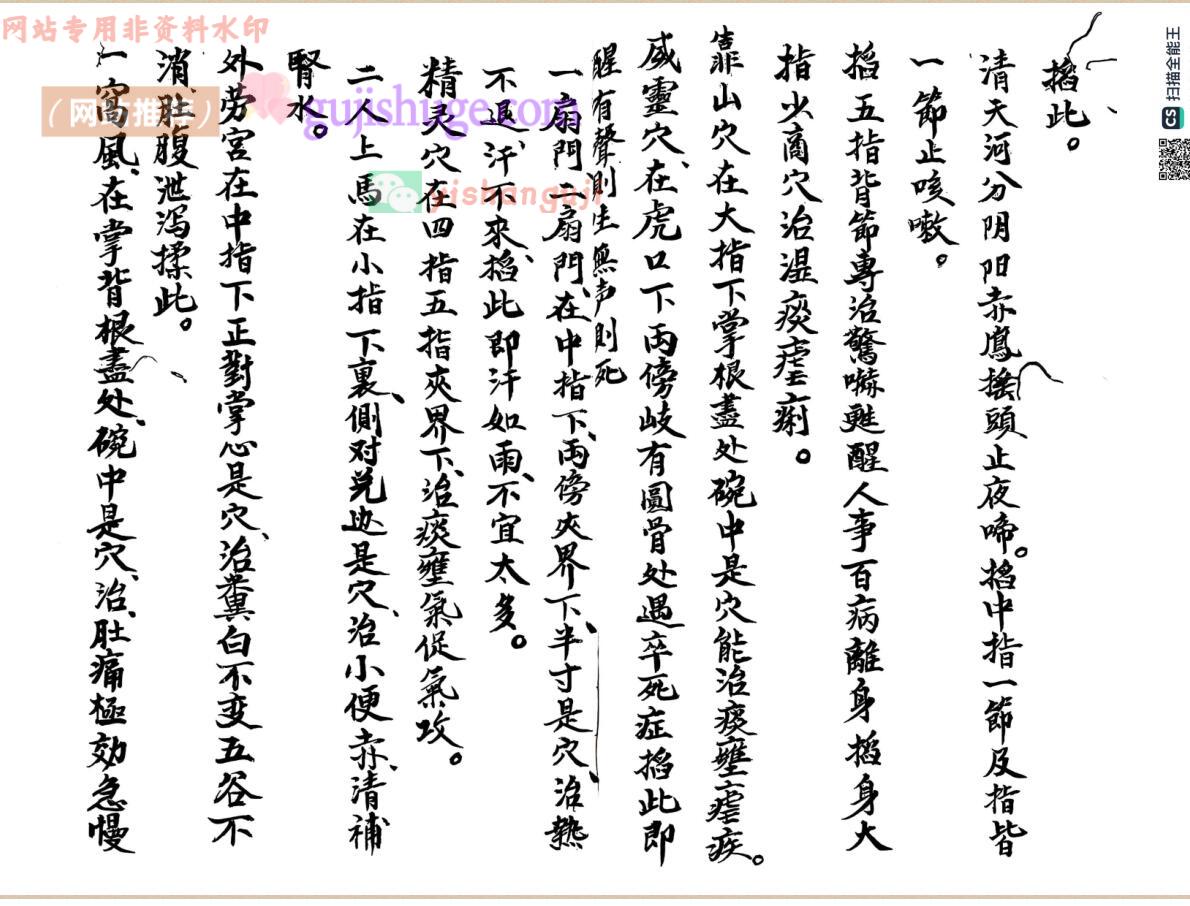 掐此。
清天河分阴阳赤鳳搖頭止夜啼。掐中指一節及指皆
一節止咳嗽。
掐五指背節專治驚嚇甦醒人事百病離身掐身大
指少商穴治湿痰瘧痢。
靠山穴在大指下掌根盡处碗中是穴能治痰壅瘧疾。
威靈穴、在虎口下兩傍岐有圓骨处遇卒死症掐此即
醒有聲則生無声則死
一扇門、二扇門、在中指下、兩傍夾界下、半寸是穴、治熱
不退、汗不來、掐此即汗如雨、不宜太多。
精灵穴在四指五指夾界下、治痰壅氣促氣攻。
二人上馬在小指下裏、側对兑边是穴、治小便赤、清補
腎水。
外劳宮在中指下正對掌心是穴、治糞白不变五谷不
消、肚腹泄瀉揉此。
一窩風、在掌背根盡处、碗中是穴、治、肚痛極効急慢
网站专用非资料水印
（网站推荐）
gujishuge.com
yishanguji
CS 扫描全能王